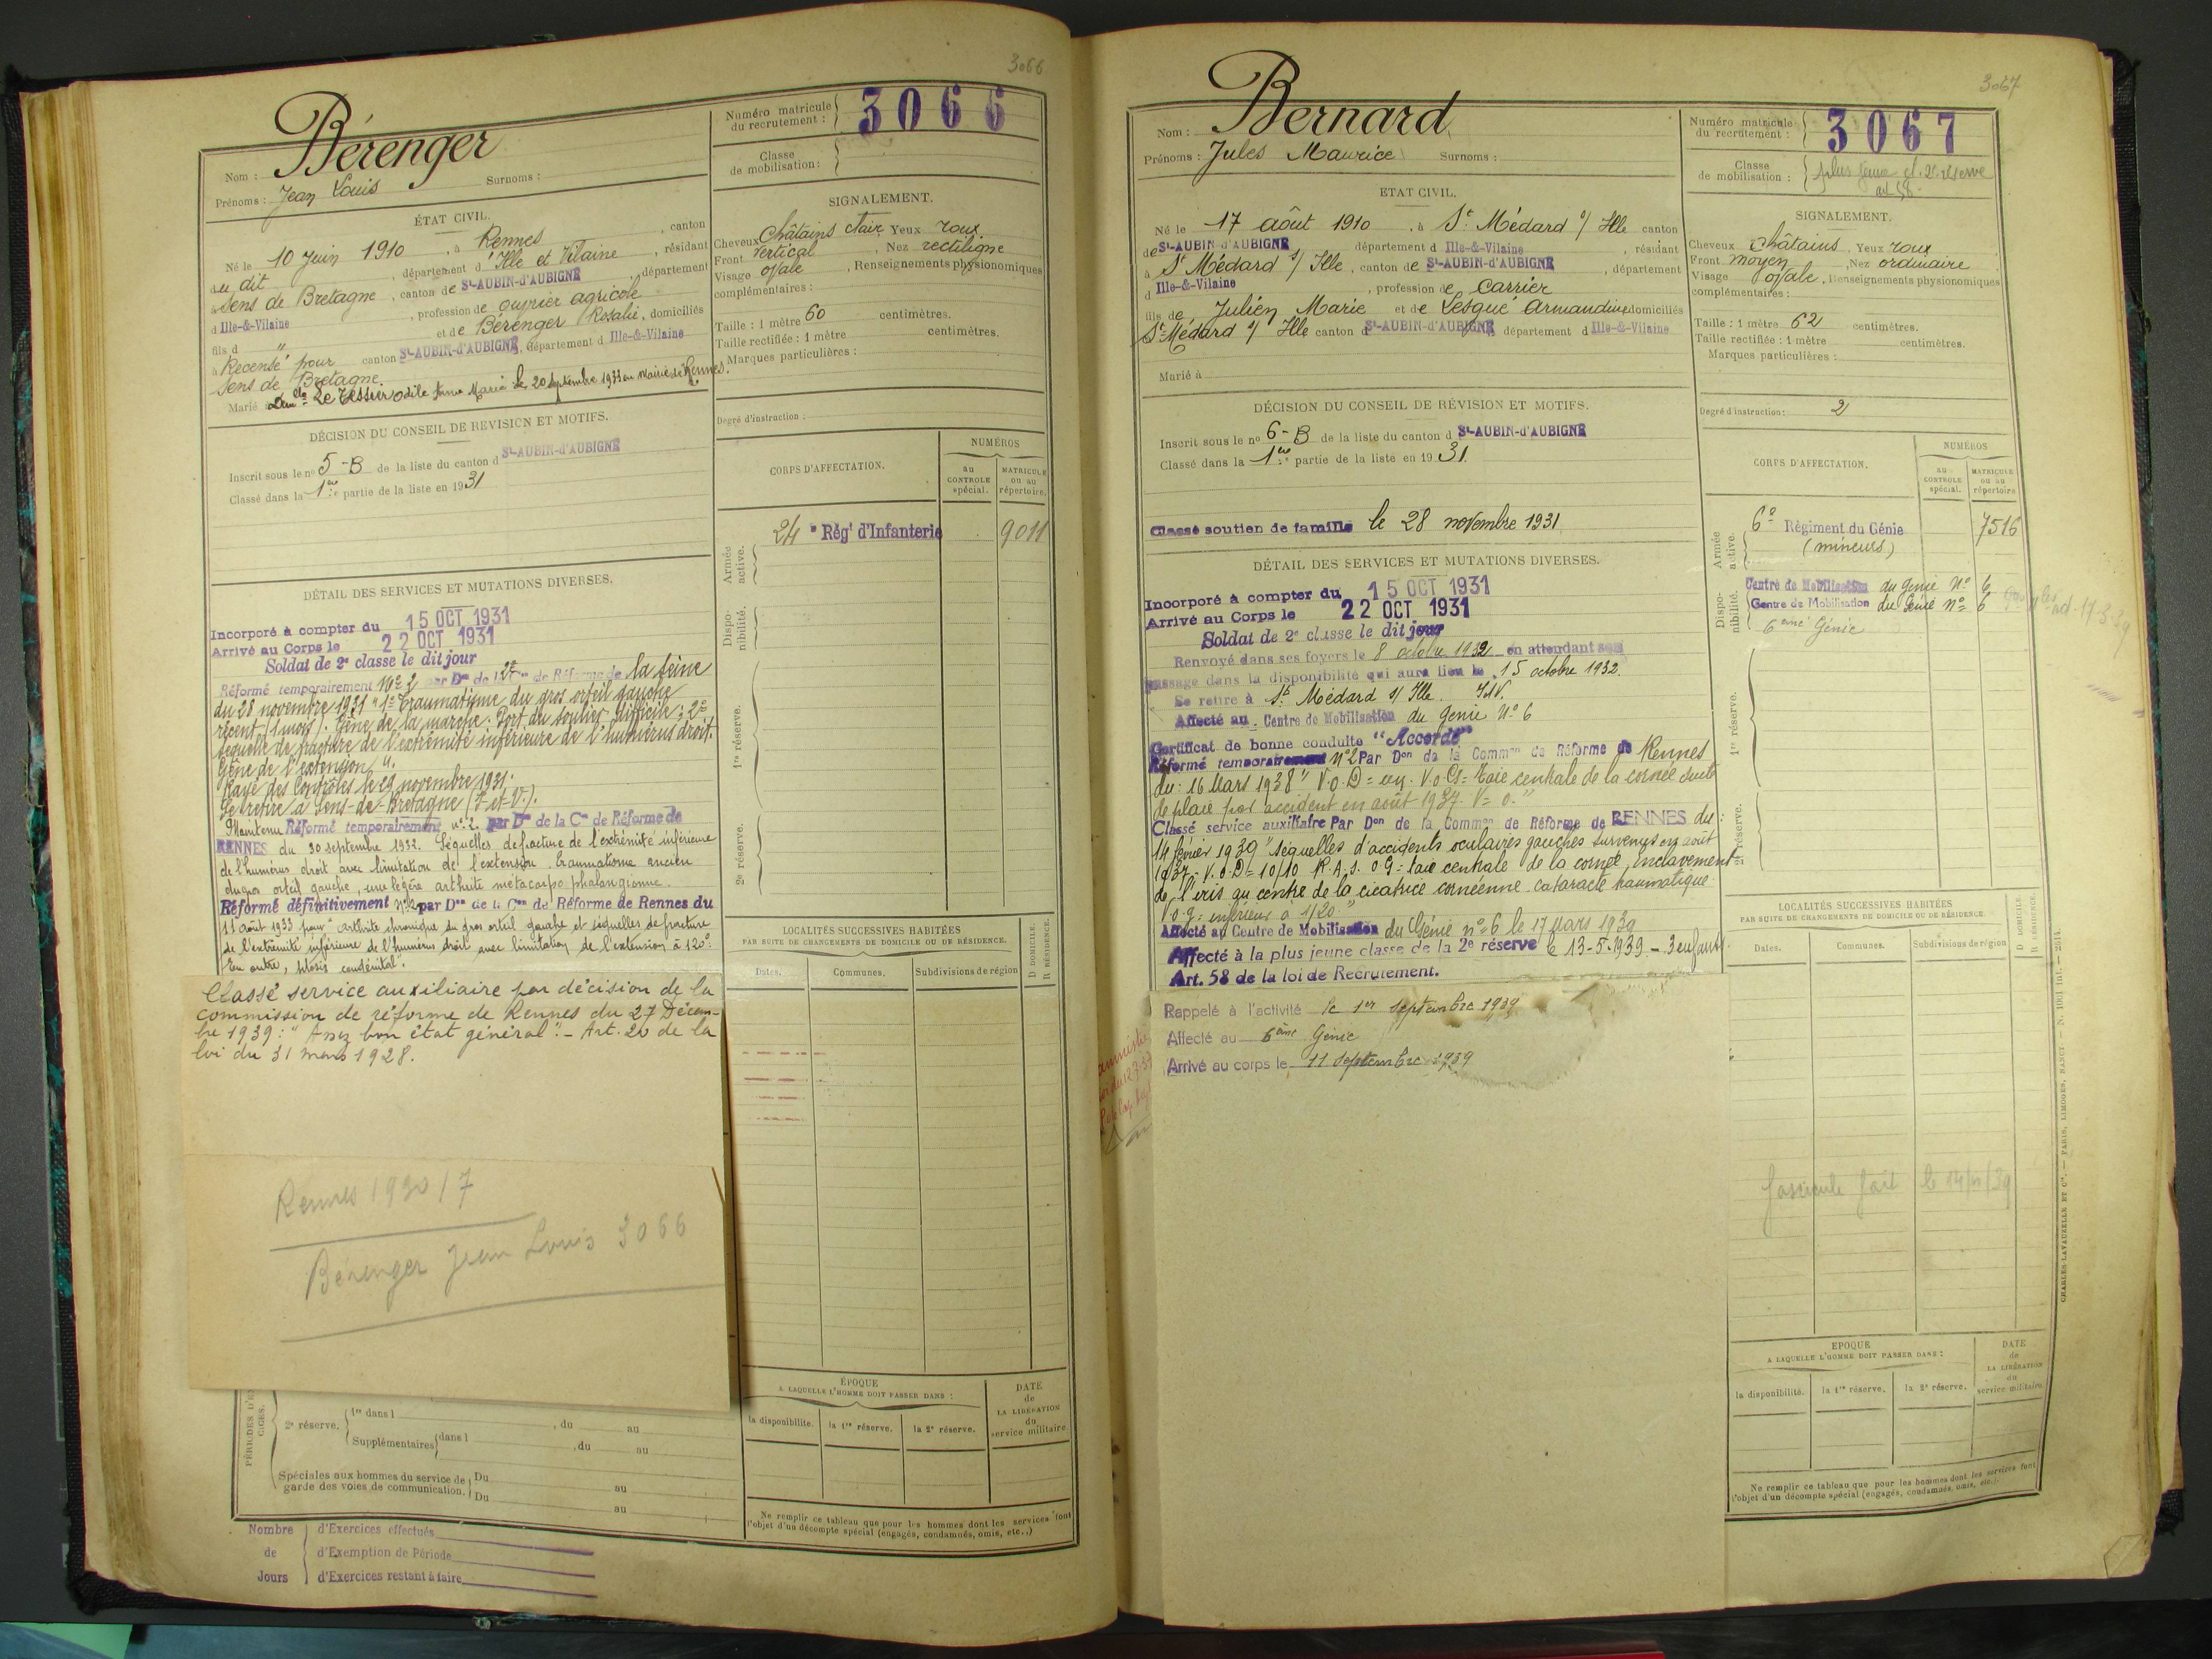 3066
Bérenger
Nom :
Prénoms : Jean Louis Surnoms :
Numéro matricule du recrutement : 3066
Classe de mobilisation :
ÉTAT CIVIL.
Né le 10 Juin 1910, à Rennes, canton
du dit, département d'Ille et Vilaine, résidant
à Sens de Bretagne, canton de St-AUBIN-d'AUBIGNÉ, département
d Ille-&-Vilaine, profession de ouvrier agricole
fils d " et de Bérenger Rosalie, domiciliés
à Recensé pour canton St-AUBIN-d'AUBIGNÉ, département d Ille-&-Vilaine
Sens de Bretagne.
Marié à Le Tessier Odile Maria le 20 septembre 1933 en Mairie de Rennes.
SIGNALEMENT.
Cheveux Châtains clair Yeux roux
Front Vertical, Nez rectiligne
Visage ovale, Renseignements physionomiques
complémentaires :
Taille : 1 mètre 60 centimètres.
Taille rectifiée : 1 mètre centimètres.
Marques particulières :
Degré d'instruction :
DÉCISION DU CONSEIL DE RÉVISION ET MOTIFS.
Inscrit sous le no 5-B de la liste du canton d St-AUBIN-d'AUBIGNÉ
Classé dans la 1re partie de la liste en 1931
DÉTAIL DES SERVICES ET MUTATIONS DIVERSES.
Incorporé à compter du 15 OCT 1931
Arrivé au Corps le 22 OCT 1931
Soldat de 2e classe le dit jour
Réformé temporairement No 2 par Don de la 2e Con de Réforme de la Seine
du 28 novembre 1931 "1o Traumatisme du gros orteil gauche
récent (1 mois). Gêne de la marche. Port du soulier difficile ; 2o
séquelle de fracture de l'extrémité inférieure de l'humérus droit.
Gêne de l'extension".
Rayé des Contrôles le 29 novembre 1931.
Se retire à Sens-de-Bretagne (I-et-V.).
Maintenu Réformé temporairement no 2. par Don de la Con de Réforme de
RENNES du 30 septembre 1932. Séquelles de fracture de l'extrémité inférieure
de l'humérus droit avec limitation de l'extension. Traumatisme ancien
du gros orteil gauche, une légère arthrite métacarpo phalangienne.
Réformé définitivement No 2 par Don de la Con de Réforme de Rennes du
11 août 1933 pour "arthrite chronique du gros orteil gauche et séquelles de fracture
de l'extrémité inférieure de l'humérus droit avec limitation de l'extension à 120o.
En outre, ptosis congénital".
Classé service auxiliaire par décision de la
commission de réforme de Rennes du 27 Décem-
bre 1939 : "Assez bon état général". - Art. 20 de la
loi du 31 mars 1928.
Rennes 1930 / 7
Bérenger Jean Louis 3066
CORPS D'AFFECTATION.
NUMÉROS
au CONTROLE spécial.
MATRICULE ou au répertoire.
Armée active.
24e Régt d'Infanterie 9011
Disponibilité.
1re réserve.
2e réserve.
LOCALITÉS SUCCESSIVES HABITÉES
PAR SUITE DE CHANGEMENTS DE DOMICILE OU DE RÉSIDENCE.
Dates. Communes. Subdivisions de région
D DOMICILE. R RÉSIDENCE.
ÉPOQUE
A LAQUELLE L'HOMME DOIT PASSER DANS :
DATE de LA LIBÉRATION du service militaire
la disponibilité. la 1re réserve. la 2e réserve.
Ne remplir ce tableau que pour les hommes dont les services font
l'objet d'un décompte spécial (engagés, condamnés, omis, etc..)
2e réserve. 1re dans l , du au
Supplémentaires dans l , du au
Spéciales aux hommes du service de garde des voies de communication. Du au
Du au
Nombre de Jours
d'Exercices effectués
d'Exemption de Période
d'Exercices restant à faire
3067
Nom : Bernard
Prénoms : Jules Maurice Surnoms :
Numéro matricule du recrutement : 3067
Classe de mobilisation : plus jeune cl. 2e réserve
art 58
ETAT CIVIL.
Né le 17 août 1910, à St Médard s/ Ille canton
de St-AUBIN-d'AUBIGNÉ département d Ille-&-Vilaine, résidant
à St Médard s/ Ille, canton de St-AUBIN-d'AUBIGNÉ, département
d Ille-&-Vilaine, profession de carrier
fils de Julien Marie et de Lesgué Armandine domiciliés
St-Médard s/ Ille canton d St-AUBIN-d'AUBIGNÉ département d Ille-&-Vilaine
Marié à
SIGNALEMENT.
Cheveux châtains, Yeux roux
Front moyen, Nez ordinaire
Visage ovale, Renseignements physionomiques
complémentaires :
Taille : 1 mètre 62 centimètres.
Taille rectifiée : 1 mètre centimètres.
Marques particulières :
Degré d'instruction : 2
DÉCISION DU CONSEIL DE RÉVISION ET MOTIFS.
Inscrit sous le no 6-B de la liste du canton d St-AUBIN-d'AUBIGNÉ
Classé dans la 1re partie de la liste en 1931.
Classé soutien de famille le 28 novembre 1931
DÉTAIL DES SERVICES ET MUTATIONS DIVERSES.
Incorporé à compter du 15 OCT 1931
Arrivé au Corps le 22 OCT 1931
Soldat de 2e classe le dit jour
Renvoyé dans ses foyers le 8 octobre 1932 en attendant son
passage dans la disponibilité qui aura lieu le 15 octobre 1932.
Se retire à St Médard s/ Ille. I&V.
Affecté au Centre de Mobilisation du génie No 6
Certificat de bonne conduite "Accordé"
Réformé temporairement No 2 Par Don de la Common de Réforme de Rennes
du : 16 Mars 1938 " V.O.D = V.O.G = Taie centrale de la cornée suite
de plaie par accident en août 1937. V = 0."
Classé service auxiliaire Par Don de la Common de Réforme de RENNES du :
14 février 1939 "séquelles d'accidents oculaires gauches survenus en août
1937 - V.O.D = 10/10 R.A.S. OG = taie centrale de la cornée, enclavement
de l'iris au centre de la cicatrice cornéenne. cataracte traumatique.
V.o.g = inférieur à 1/20"
Affecté au Centre de Mobilisation du Génie no 6 le 17 Mars 1939
Affecté à la plus jeune classe de la 2e réserve le 13-5-1939 - 3 enfants
Art. 58 de la loi de Recrutement.
Rappelé à l'activité le 1er septembre 1939
Affecté au 6ème Génie
Arrivé au corps le 11 septembre 1939
amnistié
CORPS D'AFFECTATION.
NUMÉROS
au CONTROLE spécial.
MATRICULE ou au répertoire
Armée active.
6e Régiment du Génie 7516
(mineurs)
Disponibilité.
Centre de Mobilisation du génie No 6
Centre de Mobilisation du Génie No 6
6ème Génie
1re réserve.
2e réserve.
LOCALITÉS SUCCESSIVES HABITÉES
PAR SUITE DE CHANGEMENTS DE DOMICILE OU DE RÉSIDENCE.
Dates. Communes. Subdivisions de région
D DOMICILE. R RÉSIDENCE.
fascicule fait
ÉPOQUE
A LAQUELLE L'HOMME DOIT PASSER DANS :
DATE de LA LIBÉRATION du service militaire
la disponibilité. la 1re réserve. la 2e réserve.
Ne remplir ce tableau que pour les hommes dont les services font
l'objet d'un décompte spécial (engagés, condamnés, omis, etc.).
CHARLES-LAVAUZELLE ET Cie. — PARIS, LIMOGES, NANCY.